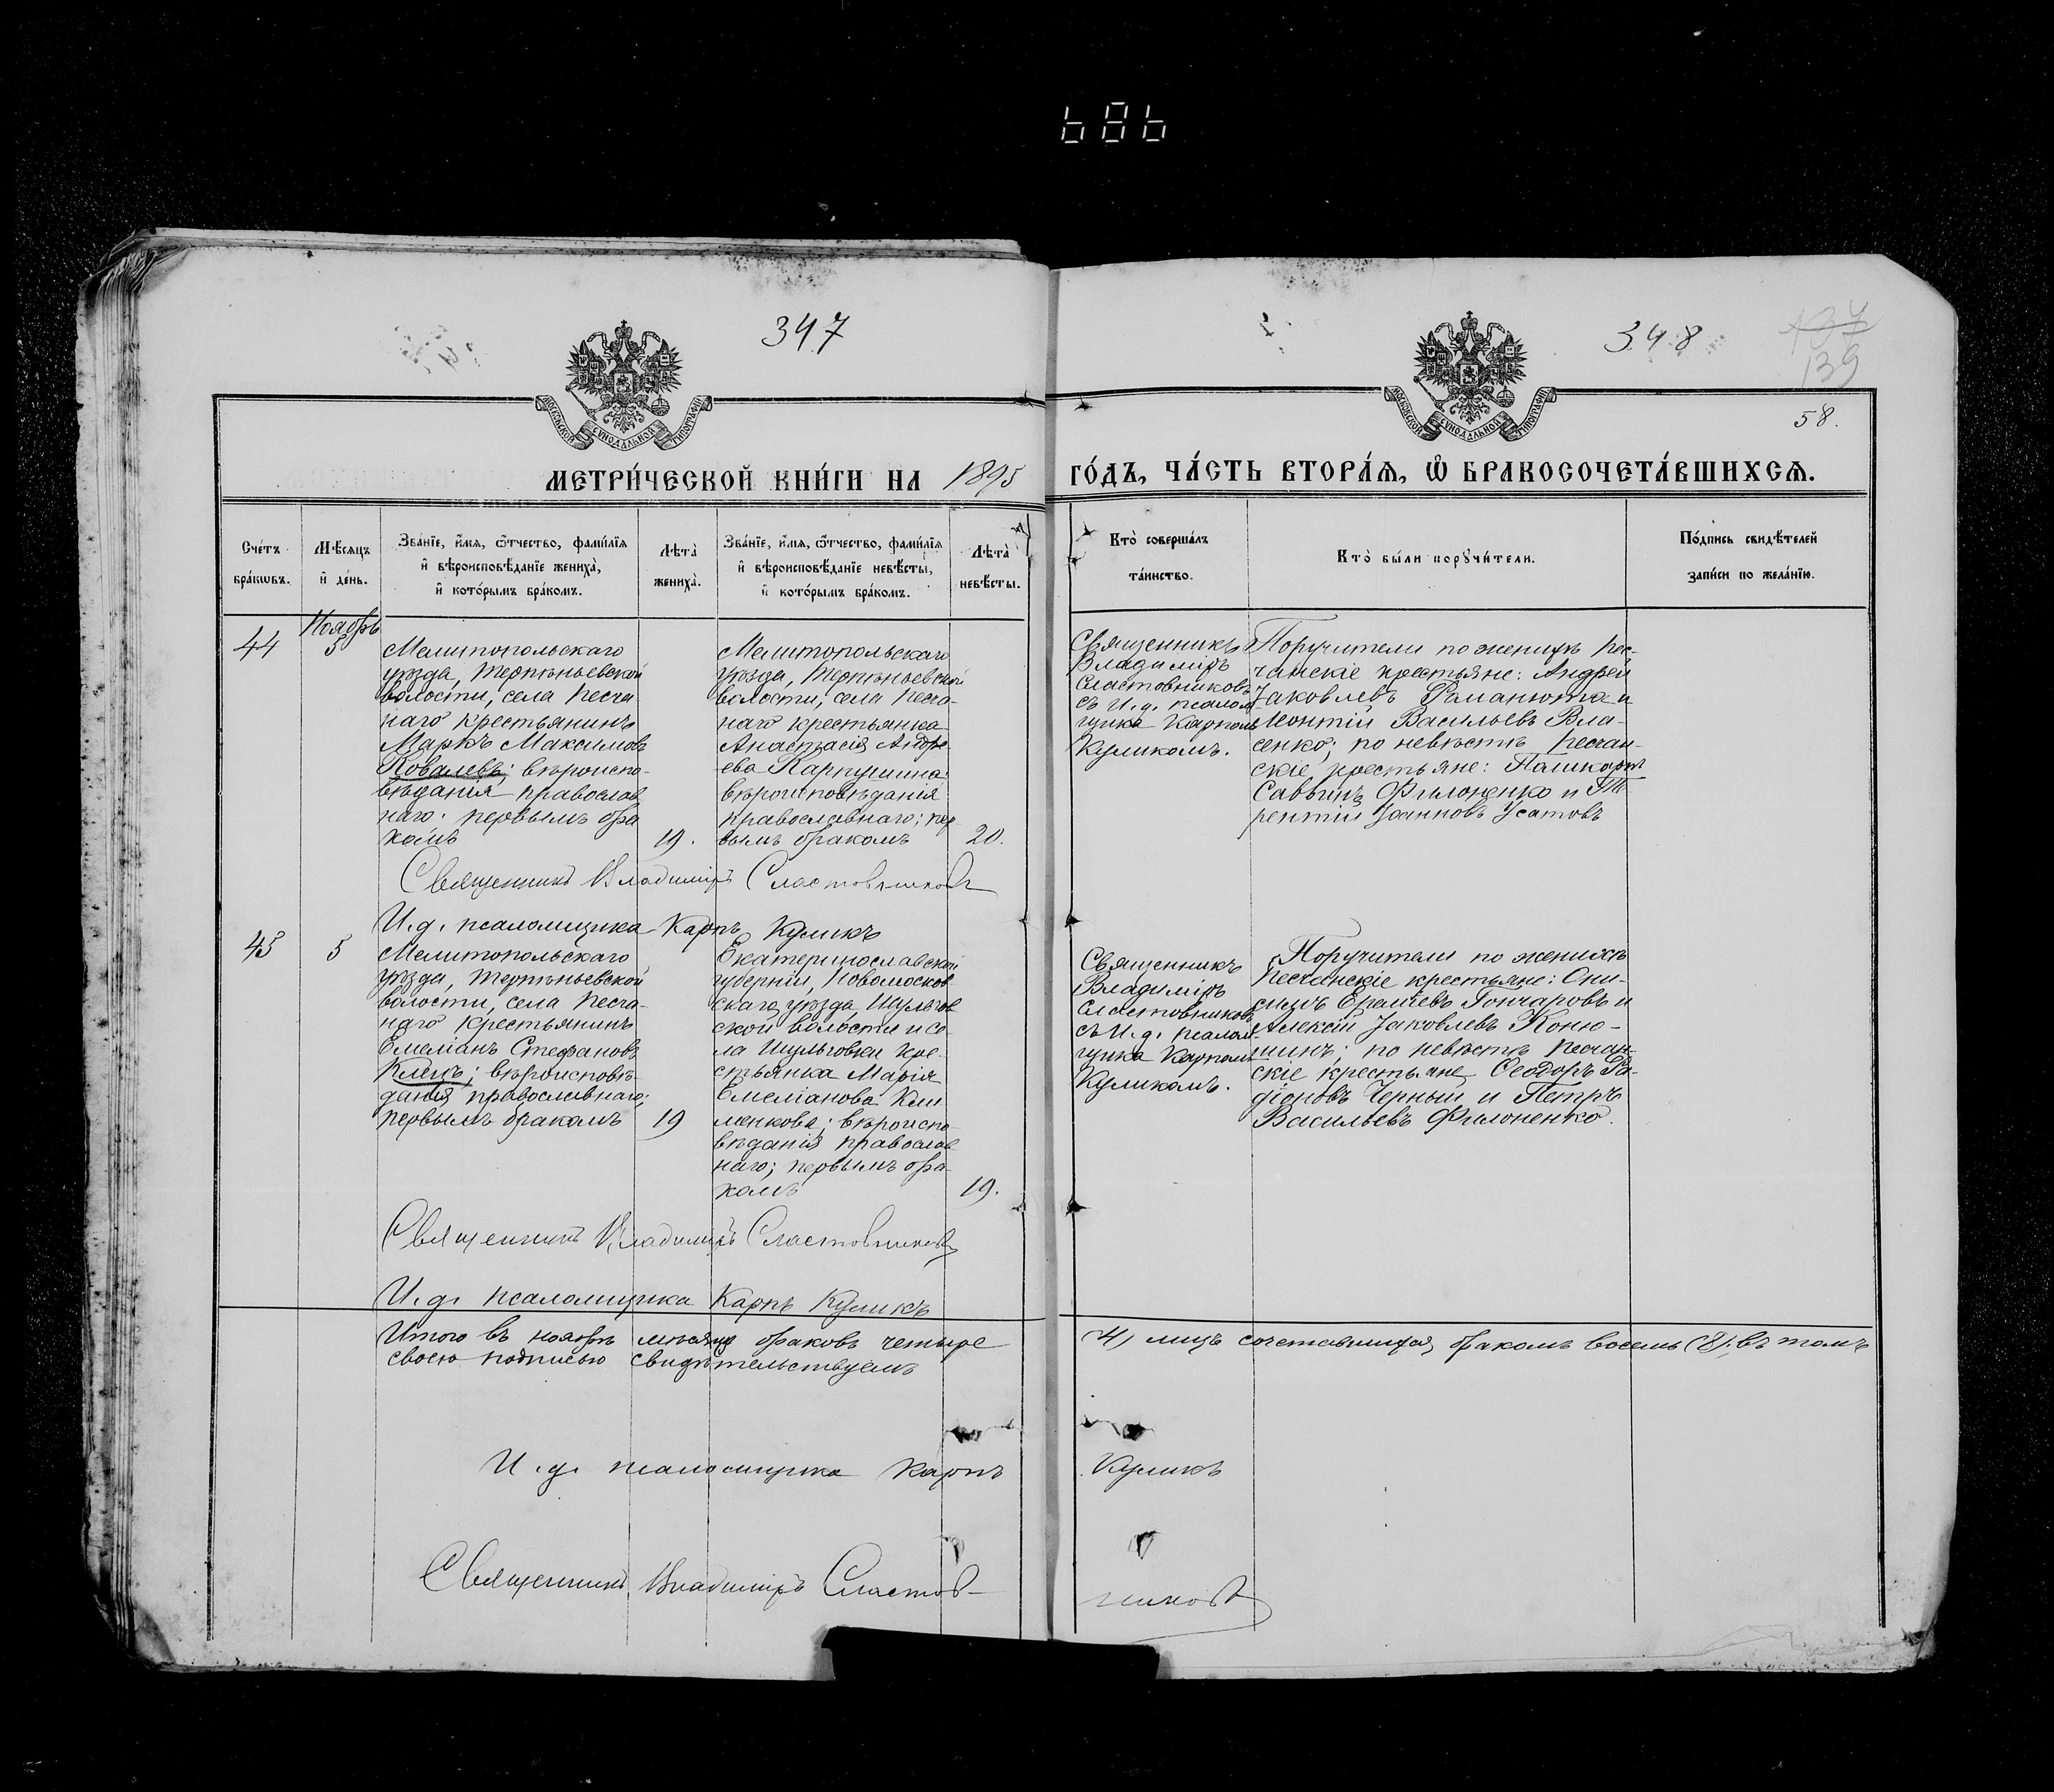 686
347
348
137
139
58.
МЕТРИ́ЧЕСКОЙ КНИ́ГИ НА 1895 ГО́ДЪ, ЧА́СТЬ ВТОРА́Я, Ѽ БРАКОСОЧЕТА́ВШИХСЯ.
МОСКОВСКОЙ СУНОДАЛЬНОЙ ТИПОГРАФІИ
МОСКОВСКОЙ СУНОДАЛЬНОЙ ТИПОГРАФІИ
Сче́тъ
бра́кѡвъ.
Мѣ́сяцъ
и҆ де́нь.
Зва́нїе, и҆́мя, ѻ҆́тчество, фами́лїя
и҆ вѣроисповѣ́данїе жениха̀,
и҆ кото́рымъ бра́комъ.
Лѣта̀
жениха̀.
Зва́нїе, и҆́мя, ѻ҆́тчество, фами́лїя
и҆ вѣроисповѣ́данїе невѣ́сты,
и҆ кото́рымъ бра́комъ.
Лѣта̀
невѣ́сты.
Кто̀ соверша́лъ
та́инство.
Кто̀ бы́ли порꙋчи́тели.
По́дпись свидѣ́телей
за́писи по жела́нїю.
Ноябрь
44
5
Мелитопольскаго
уѣзда, Терпѣньевской
волости, села Песча-
наго крестьянинъ
Маркъ Максимовъ
Ковалевъ; вѣроиспо-
вѣданія православ
наго. первымъ бра
комъ
19.
Мелитопольскаго
уѣзда, Терпѣньевской
волости, села Песча-
наго крестьянка
Анастасія Андре-
ева Карпушина
вѣроисповѣданія
православнаго; пер
вымъ бракомъ
20.
Священникъ
Владиміръ
Сластовниковъ
съ И. д. псалом-
щика Карпомъ
Куликомъ.
Поручители по женихѣ Пес-
чанскіе крестьяне: Андрей
Іаковлевъ Романюта и
Леонтій Васильевъ Вла-
сенко; по невѣстѣ Песчан-
скіе крестьяне:
Саввинъ Филоненко и Те
рентій Іоанновъ Усатовъ
Священникъ Владиміръ Сластовниковъ
И. д. псаломщика Карпъ Куликъ
45
5
Мелитопольскаго
уѣзда, Терпѣньевской
волости, села Песча-
наго крестьянинъ
Емеліанъ Стефановъ
Клецъ; вѣроисповѣ-
данія православнаго;
первымъ бракомъ
19
Екатеринославской
губерніи, Новомосков-
скаго уѣзда, Шульгов
ской волости и се-
ла Шульговки кре-
стьянка Марія
Емеліанова Кли
менкова; вѣроиспо-
вѣданія православ
наго; первымъ бра-
комъ
19.
Священникъ
Владиміръ
Сластовниковъ
съ И. д. псалом-
щика Карпомъ
Куликомъ.
Поручители по женихѣ
Песчанскіе крестьяне: Они-
симъ Гончаровъ и
Алексій Іаковлевъ Коню-
шинъ; по невѣстѣ Песчан-
скіе крестьяне Ѳеодоръ Ра-
діоновъ Черный и Петръ
Васильевъ Филоненко.
Священникъ Владиміръ Сластовниковъ
И. д. псаломщика Карпъ Куликъ
Итого въ ноябрѣ мѣсяцѣ браковъ четыре (4) лицъ сочетавшихся бракомъ восемь (8); въ томъ
своею подписью свидѣтельствуемъ
И. д. псаломщика Карпъ Куликъ
Священникъ Владиміръ Сластов-
никовъ